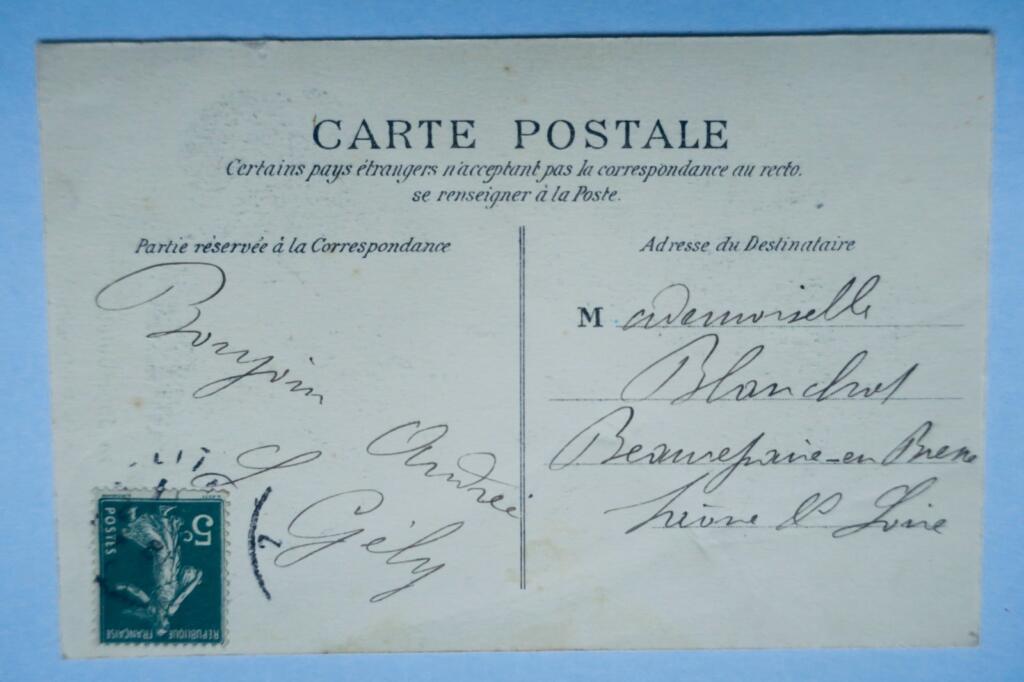 CARTE POSTALE
Certains pays étrangers n'acceptant pas la correspondance au recto.
se renseigner à la Poste.
Partie réservée à la Correspondance
Adresse du Destinataire
Mademoiselle
Blanchot
Beaurepaire-en Bresse
Saône & Loire
Andrée
Gély
5c
POSTES
REPUBLIQUE FRANÇAISE